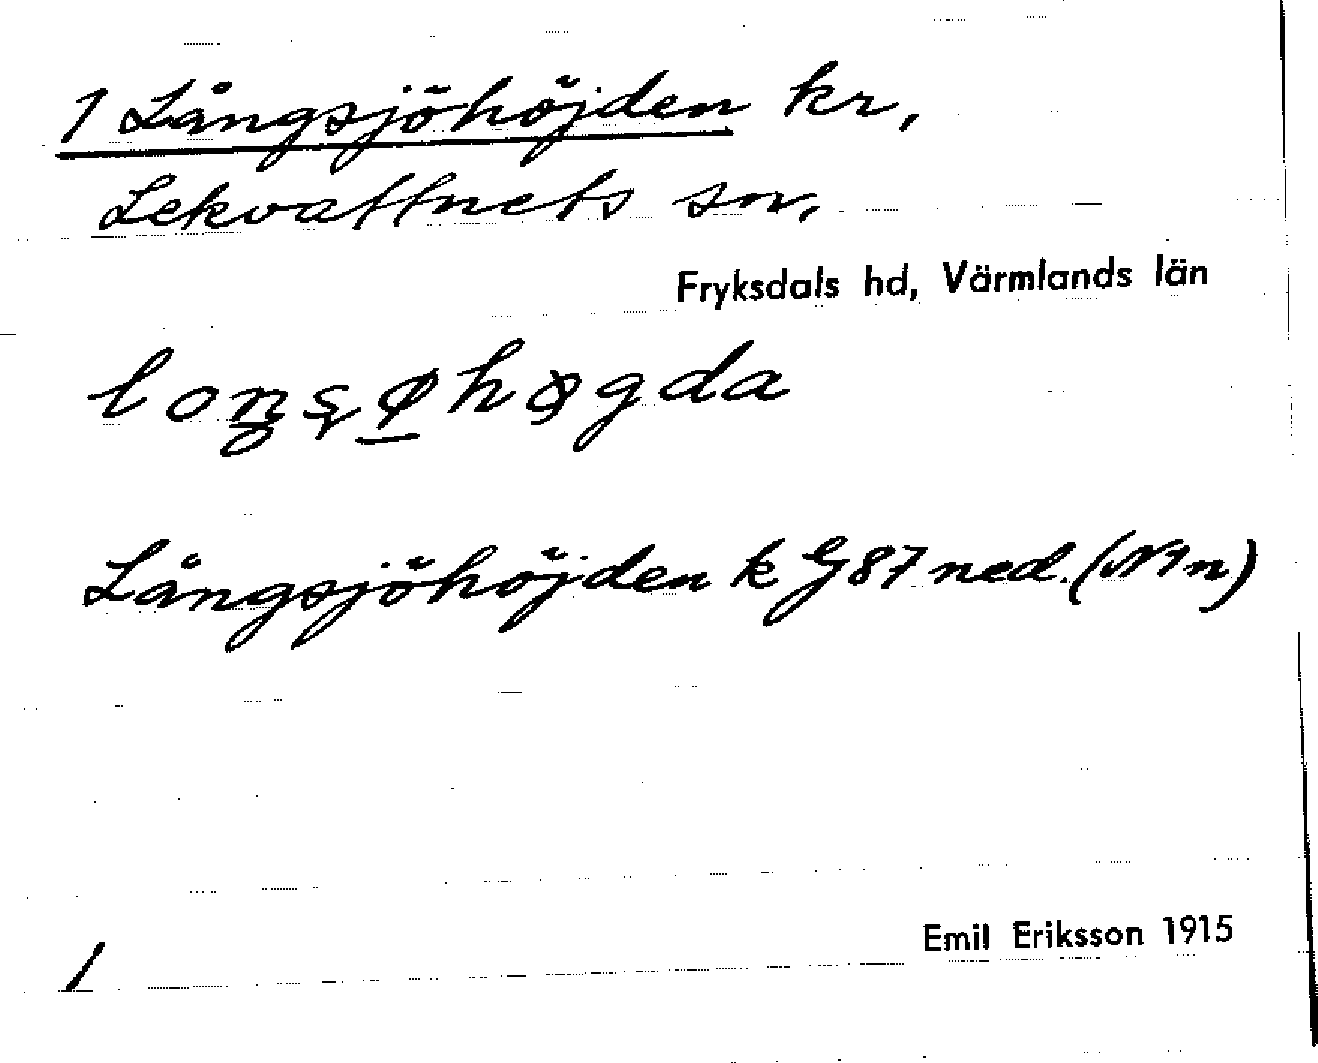 1 Långsjöhöjden kr,
Lekvattnets sn,
Fryksdals hd, Värmlands län
Långsjöhöjden k G87 ned. (N1n)
1
Emil Eriksson 1915